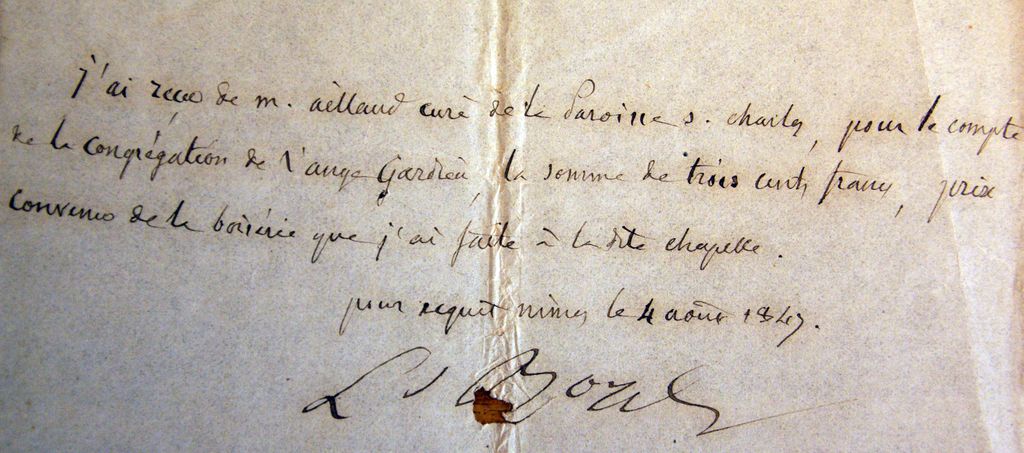 j'ai reçu de m. aillaud curé de la Paroisse s. charles, pour le compte
de la congrégation de l'ange Gardien, la somme de trois cents francs, prix
convenu de la boisérie que j'ai faite à la dite chapelle.
pour acquit nimes le 4 août 1847.
Ls